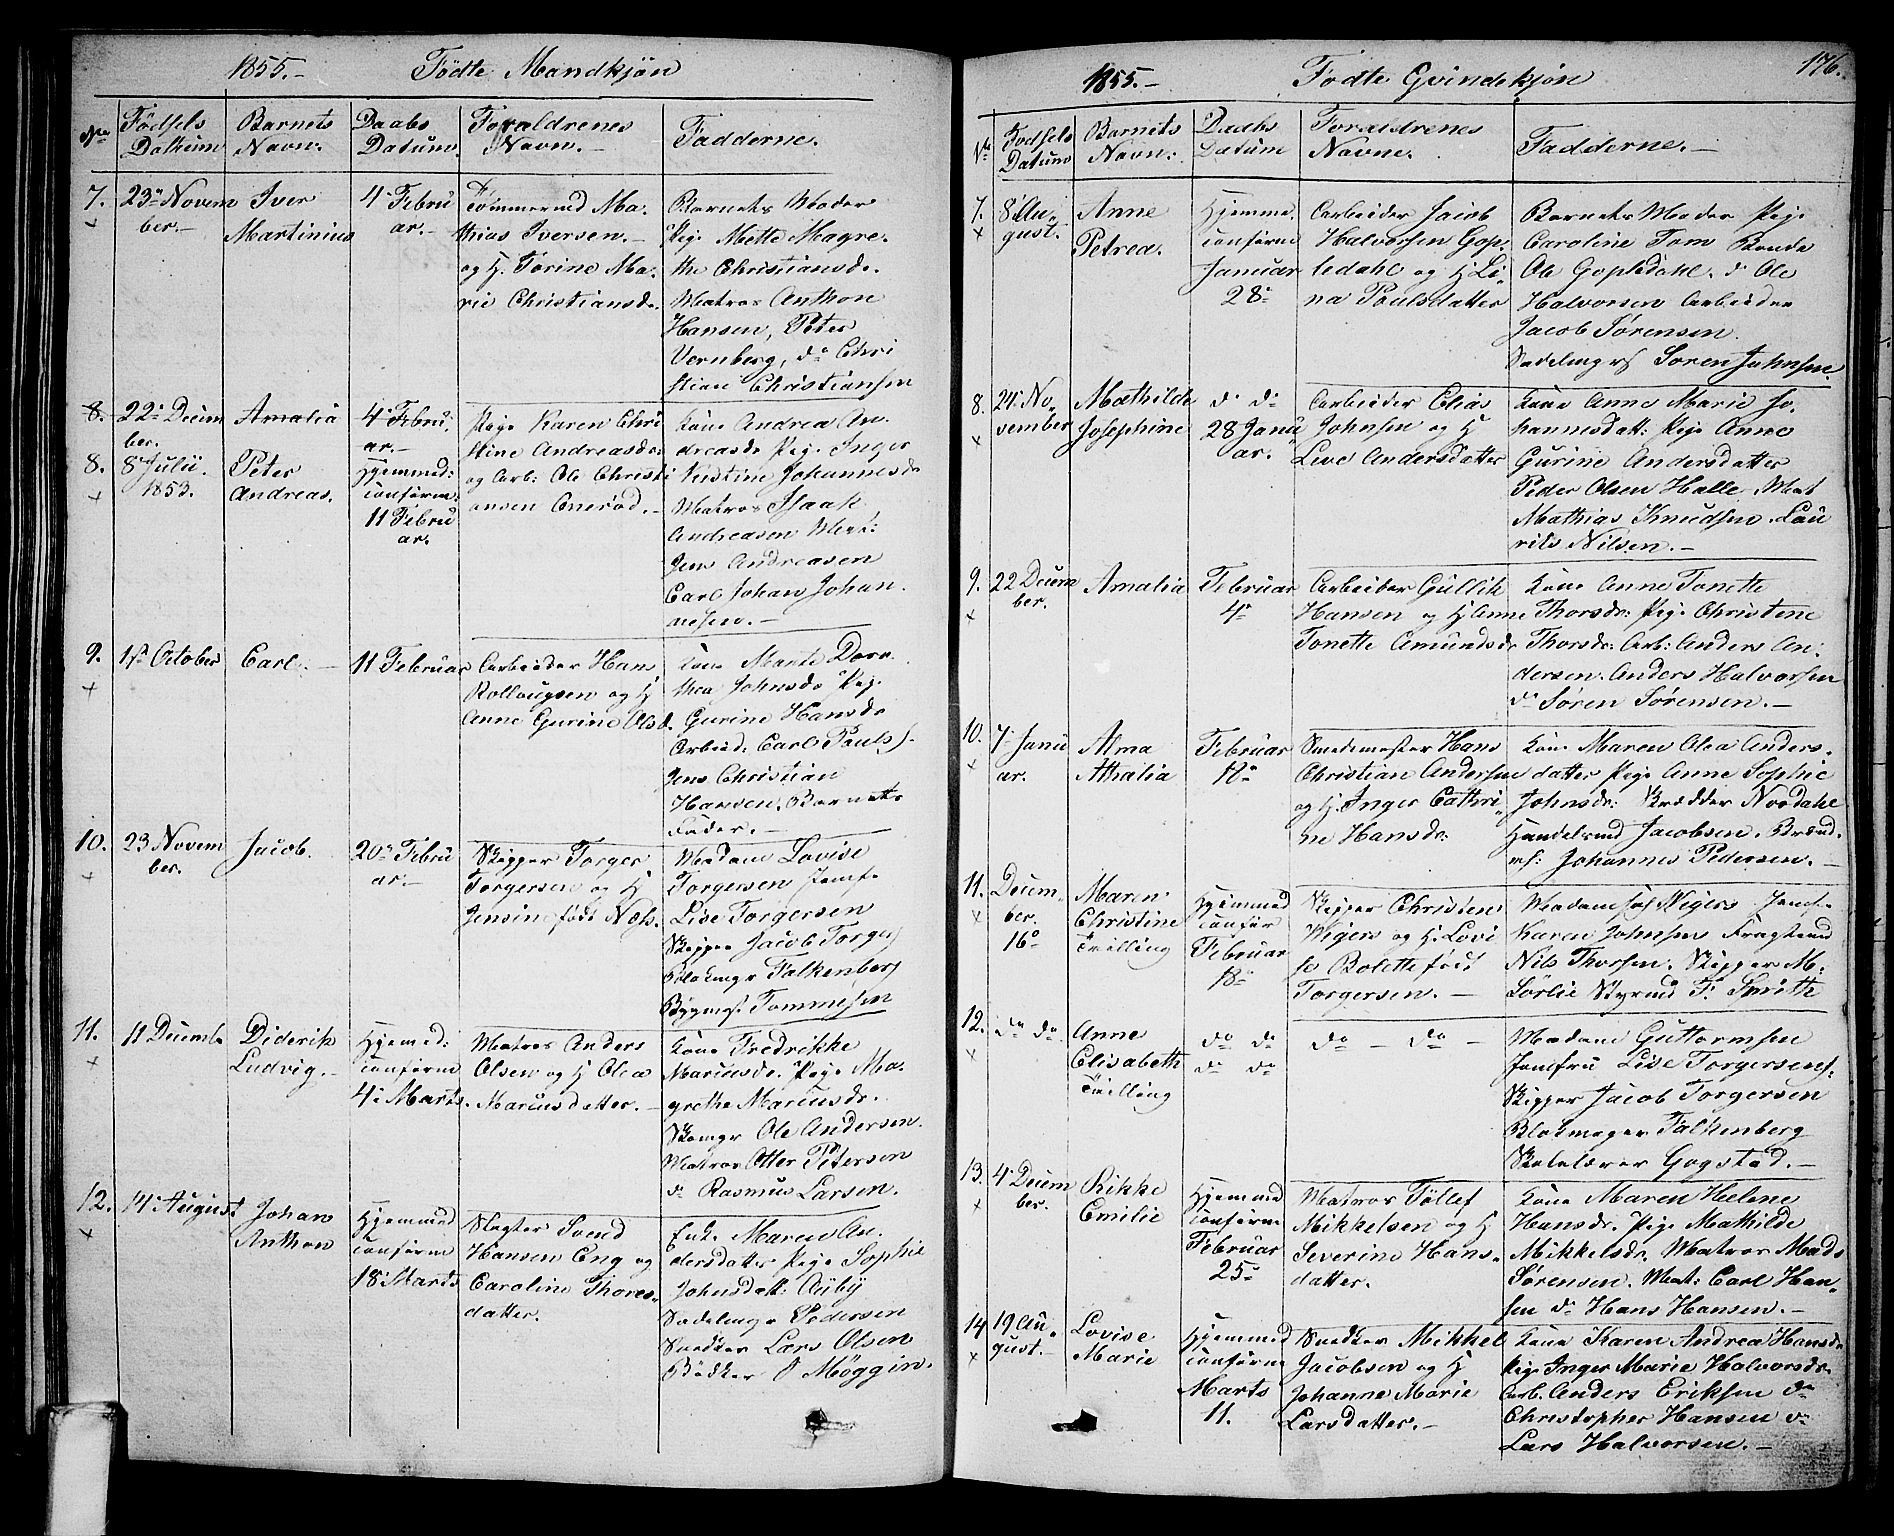 1855.- Fødte Mandkjøn
No Fødsels Datum Barnets Navn. Daabs Datum. Forældrenes Navn.- Fadderne.
7. 23de Novem
ber.-
Iver
Martinius
4 Febru
ar.-
Tømmermd Ma-
thias Iversen.-
og H. Torine Ma-
rie Christiansdr.
Barnets Moder
Pige Mette Magre-
the Christiansdr.
Matros Anthon
Hansen, Peter
Vernberg, do Chri
stian Christiansen
8. 22 Decem
ber.
Amalia
4 Febru,
ar.-
8. 8 Julii.
1853.
Peter
Andreas.
Hjemmed:
confirm:
11 Febru
ar.
Pige Karen Chri
stine Andreasdr
og Arb: Ole Christi
ansen Onerød.-
Kone Andrea An-
dreasdr Pige Inger
Kirstine Johannesdr
Matros Isaak
Andreasen Mat:
Jens Andreasen
Carl Johan Johan.
nesen.-
9. 1ste October
Carl.-
11 Februar
Arbeider Hans
Rollaugsen og H
Anne Gurine Olsd.
Kone Marte Doro-
thea Johnsdr Pige
Gurine Hansdr
Arbeid: Carl Pauls
Jens Christian
Hansen. Barnets
Fader.-
10. 23 Novem
ber.
Jacob.
20de Febru
ar.-
Skipper Torger
Torgersen og H
Jensine født Næss.
Madam Lovise
Torgersen Jomf.
Lise Torgersen
Skipper Jacob Torgers
Blokmgr Falkenberg
Bygmest Tommesen
11. 11 Decemb.
Diderik
Ludvig.-
Hjemmed:
confirm
4 Marts.
Matros Anders
Olsen og H Olea
Mariusdatter.-
Kone Fredrikke
Mariusdr. Pige Ma-
grethe Mariusdr.
Skomgr Ole Andersen.
Matros Otter Petersen
do Rasmus Larsen.
12. 14 August
Johan
Anthon
Hjemmed
confirm
18 Marts
Slagter Svend
Hansen Eng og
Caroline Thores-
datter.
Enke Maren An-
dersdatter Pige Sophie
Johnsdatt: Auby
Sadelmgr Pedersen
Snedker Lars Olsen
Bødker O Møggin.
1855.- Fødte Qvindekjøn 176.
No Fødsels Datum Barnets Navn. Daabs Datum Forældrenes Navne. Fadderne.-
7. 8 Au-
gust.
Anne
Petrea.
Hjemme.
confirm
Januar
28de
Arbeider Jacob
Halvorsen Gop-
ledahl og H Li-
na Poulsdatter
Barnets Moder Pige
Caroline Tom Bonde
Ole Gopledahl. do Ole
Halvorsen Arbeider
Jacob Sørensen.
Sadelmgrs Soren Johnsen.
8. 24 No-
vember
Mathilde
Josephine
do do
28 Janu
ar.
Arbeider Elias
Johnsen og H
Live Andersdatter
Kone Anne Marie Jo-
hannesdatt: Pige Anne
Gurine Andersdatter
Peder Olsen Halle. Mat
Mathias Knudsen. Lau
rits Nilsen.-
9. 22 Decem
ber.
Amalia
Februar
4de
Arbeider Gullik
Hansen og H Anne
Tonette Amundsdr
Kone Anne Tonette
Thorsdr: Pige Christine
Thorsdr: Arb: Anders An-
dersen. Anders Halvorsen
do Søren Sørensen.-
10. 7 Janu
ar.
Alma
Athalia
Februar
18de
Smedemester Hans
Christian Andersen
og H. Inger Cathri
ne Hansdr:
Kone Maren Olea Anders.
datter Pige Anne Sophie
Johnsdr: Skrædder Nordahl
Handelsmd Jacobsen. Brænd.
mf: Johannes Pedersen.-
11. Decem-
ber.
16de
Maren
Christine
Tvilling
Hjemmed
confir
Februar
18de
Skipper Christen
Wigers og H. Lovi
se Bolette født
Torgersen.-
Madam Wigers Jomf.
Karen Johnsen Fragtemd
Nils Thorsen. Skipper M.
Sorlie Styrmd F: Smith
12. do do.
Anne
Elisabeth
Tvilling
do do
do do
do - do -
Madam Guttormsen
Jomfru Lise Torgersen
Skipper Jacob Torgersen
Blokmager Falkenberg
Skolelærer Gogstad.-
13. 4 Decem
ber.
Rikke
Emilie
Hjemmed
confirm
Februar
25de
Matros Tollef
Mikkelsen og H
Severine Hans-
datter.
Kone Maren Helene
Hansdr. Pige Mathilde
Mikkelsdr. Matros Mads
Sørensen. Mat: Carl Han-
sen do Hans Hansen.-
14 19 Au-
gust.-
Lovise
Marie
Hjemmed
confirm
Marts
11.
Snedker Mikkel
Jacobsen og H
Johanne Marie
Larsdatter.-
Kone Karen Andrea Hansdr
Pige Inger Marie Halvorsdr.
Arb. Anders Eriksen do
Christopher Hansen do
Lars Halvorsen.-